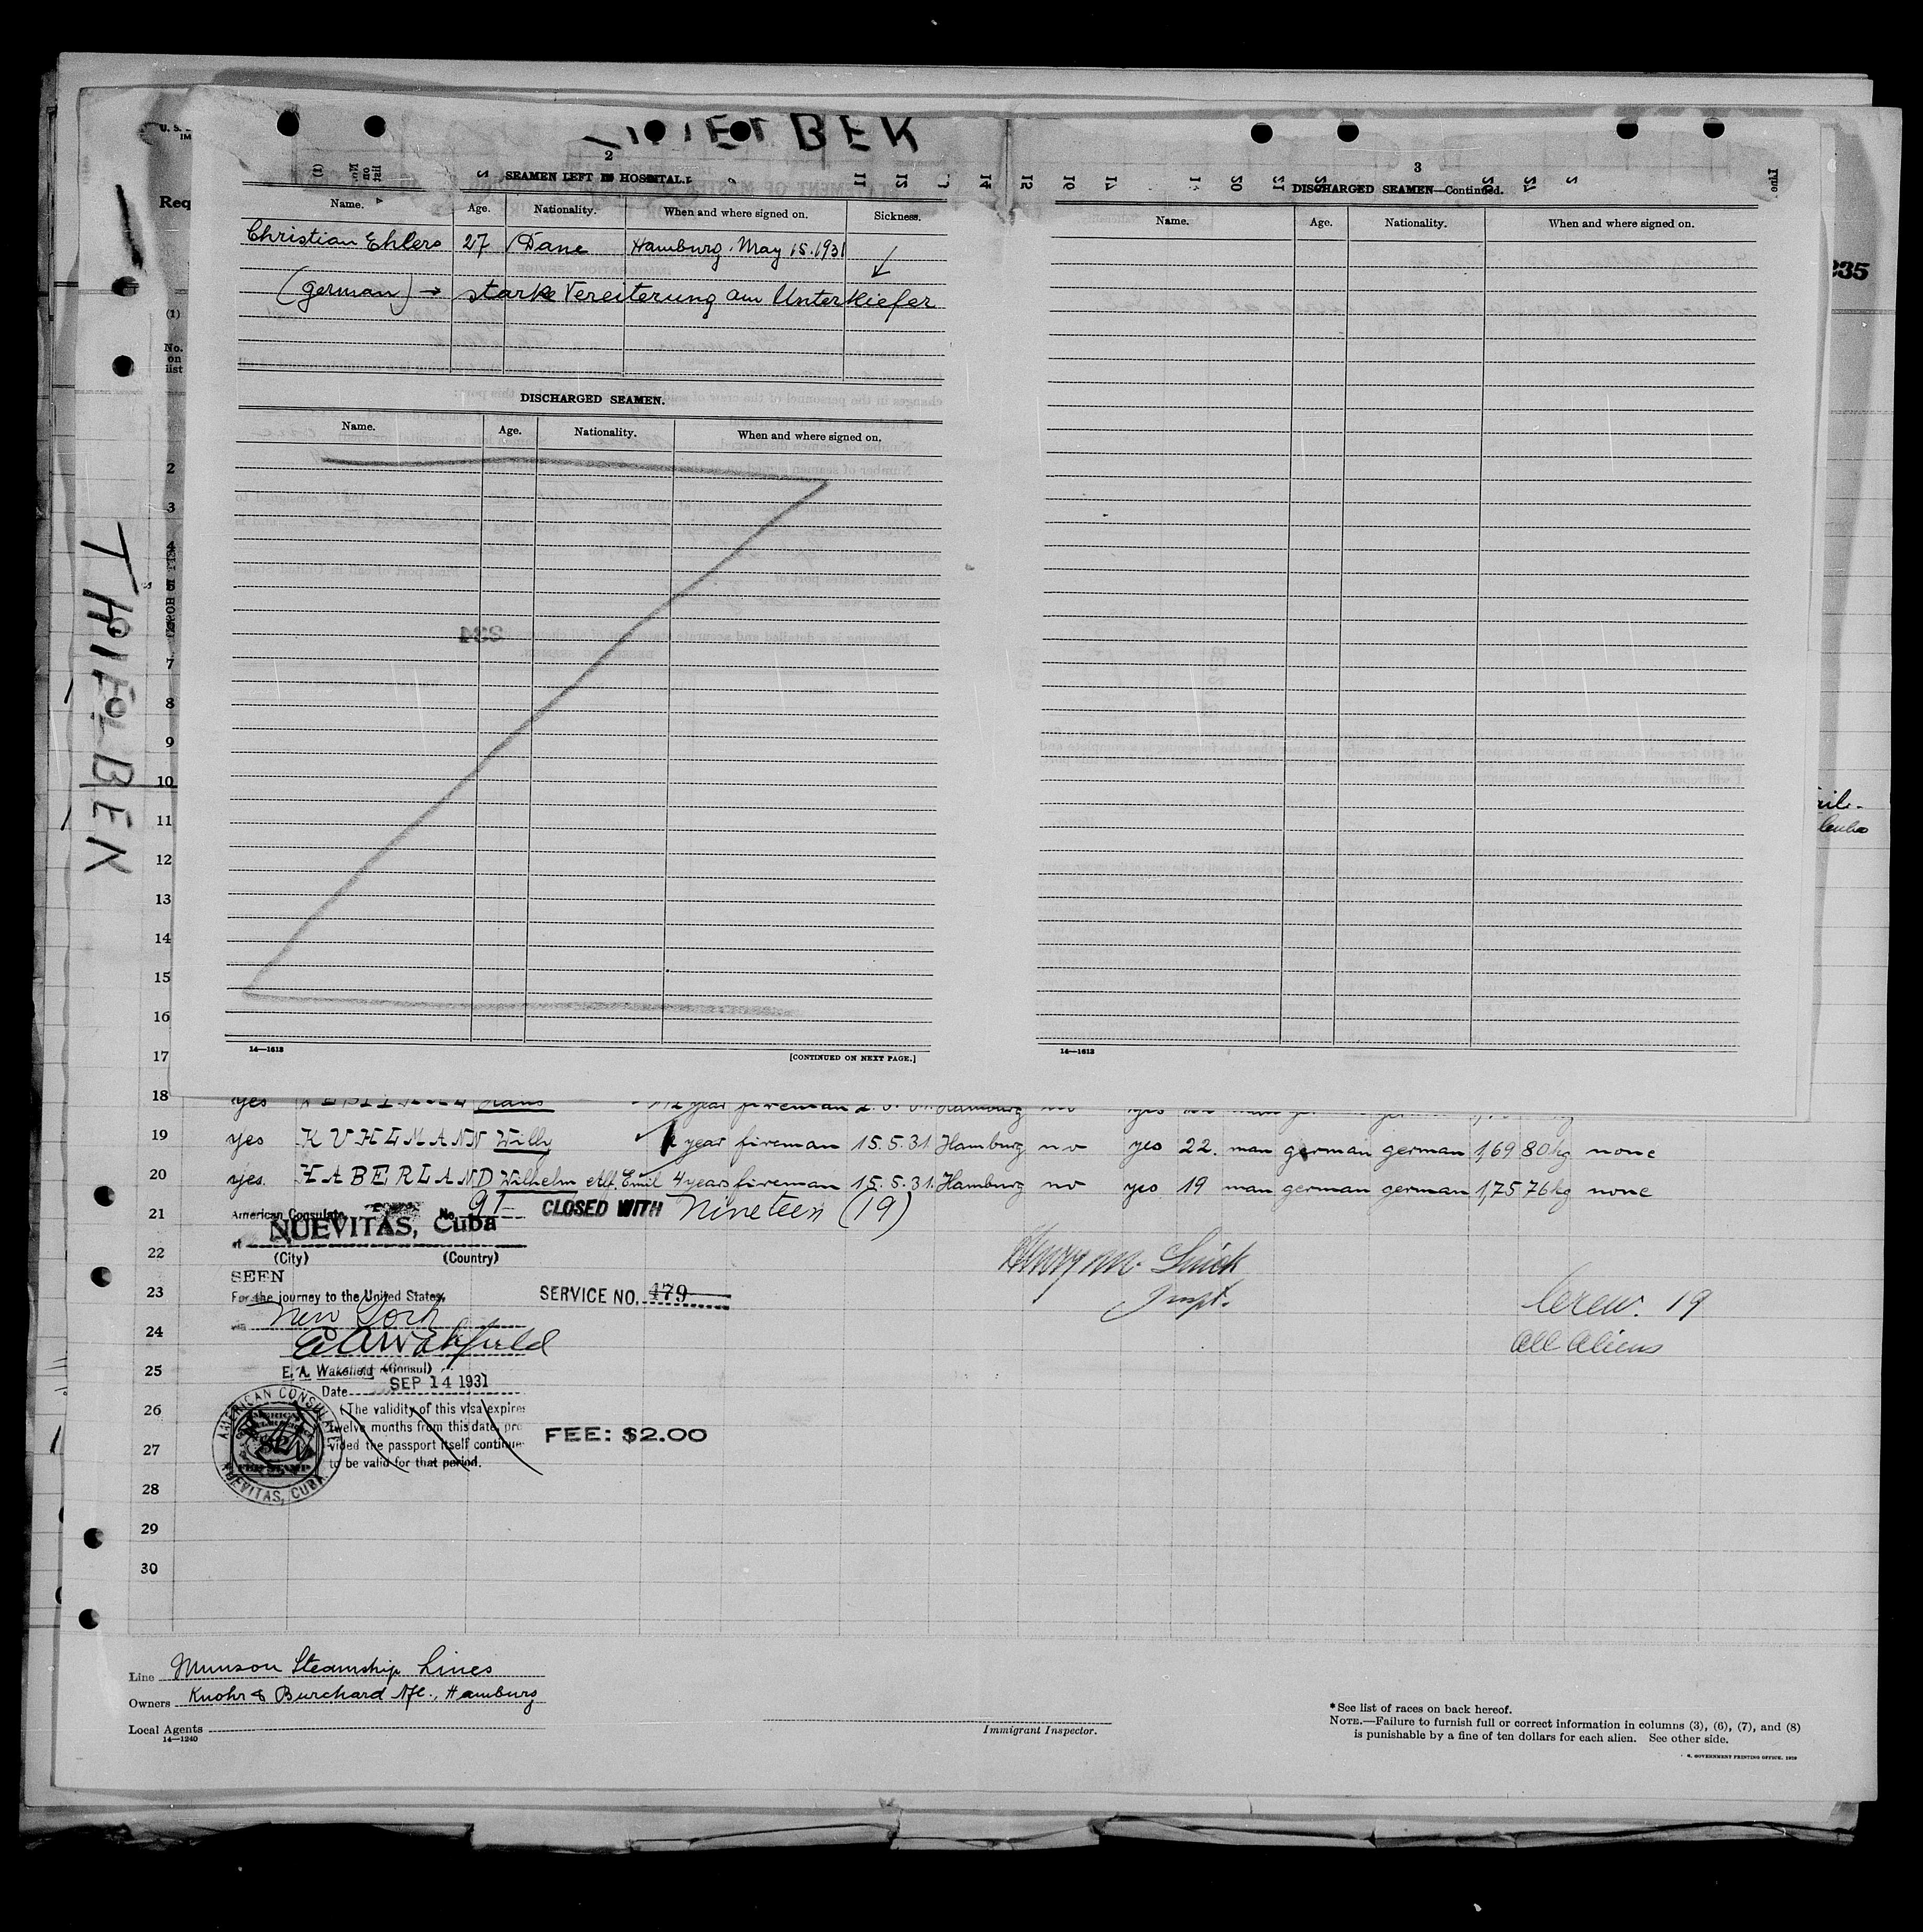 THIELBEK
2
SEAMEN LEFT IN HOSPITAL.
Name. Age. Nationality. When and where signed on. Sickness.
Christian Ehlers 27 Dane Hamburg. May 15. 1931
(german) → starke Vereiterung am Unterkiefer
DISCHARGED SEAMEN.
Name. Age. Nationality. When and where signed on.
14—1613
[CONTINUED ON NEXT PAGE.]
3
DISCHARGED SEAMEN—Continued.
Name. Age. Nationality. When and where signed on.
14—1613
235
Req
(1)
No.
on
list
THIELBEK
2
3
4
5
7
8
9
10
11
12
13
14
15
16
17
18 yes Hans year fireman Hamburg
19 yes KUHLMANN Willy year fireman 15.5.31. Hamburg no yes 22. man german german 1,69 80kg none
20 yes. HABERLAND Wilhelm Alf. Emil 4 years fireman 15.5.31. Hamburg no yes 19 man german german 1,75 76kg none
21
22
23
24
25
26
27
28
29
30
American Consulate No. 91
at NUEVITAS, Cuba
(City) (Country)
SEEN
For the journey to the United States.
New York
E A Wakefield
E. A. Wakefield (Consul)
Date SEP 14 1931
(The validity of this visa expires
twelve months from this date, pro
vided the passport itself continues
to be valid for that period.
AMERICAN CONSULATE
NUEVITAS, CUBA
CLOSED WITH Nineteen (19)
SERVICE NO. 479
FEE: $2.00
Inspt.
Crew. 19
All Aliens
Line Munson Steamship Lines
Owners Knohr & Burchard Nfl., Hamburg
Local Agents
14—1240
Immigrant Inspector.
*See list of races on back hereof.
NOTE.—Failure to furnish full or correct information in columns (3), (6), (7), and (8)
is punishable by a fine of ten dollars for each alien. See other side.
GOVERNMENT PRINTING OFFICE.